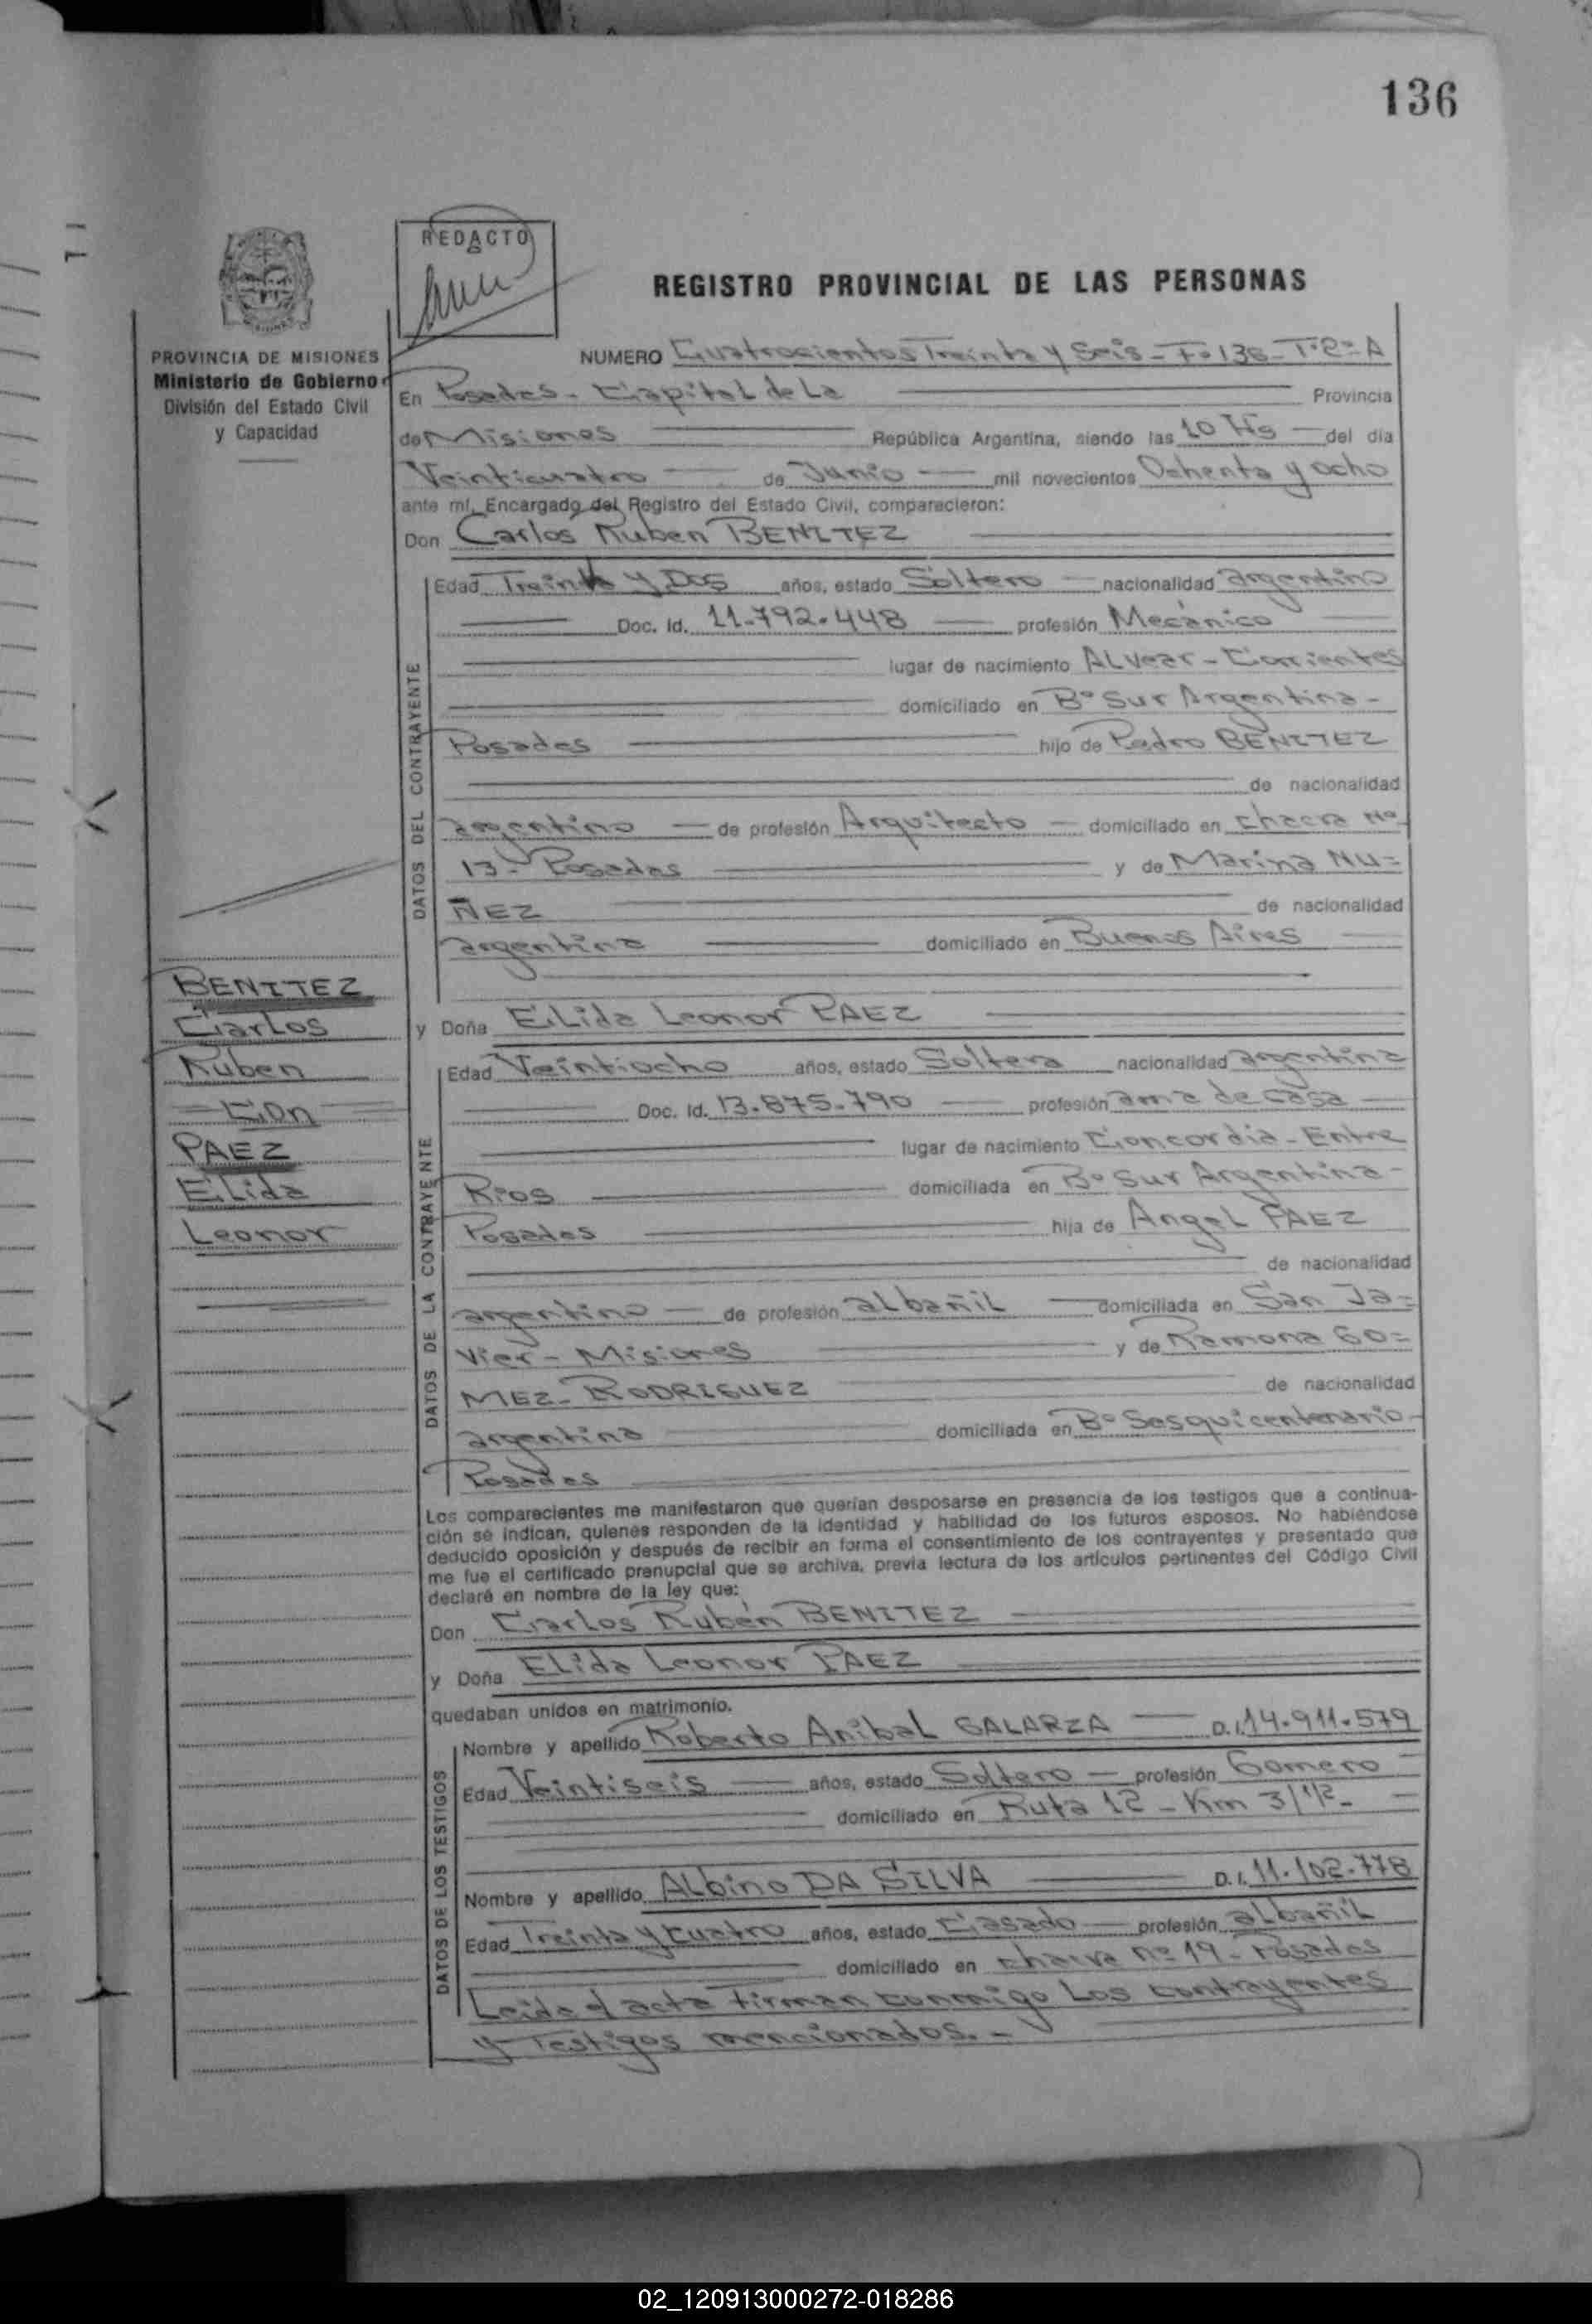 136
REDACTO
REGISTRO PROVINCIAL DE LAS PERSONAS
PROVINCIA DE MISIONES
Ministerio de Gobierno
División del Estado Civil
y Capacidad
NUMERO Cuatrocientos Treinta y Seis - Fº 136 - Tº 2º A
En Posadas - Capital de La Provincia
de Misiones República Argentina, siendo las 10 Hs del día
Veinticuatro de Junio mil novecientos Ochenta y ocho
ante mí, Encargado del Registro del Estado Civil, comparecieron:
Don Carlos Ruben BENITEZ
DATOS DEL CONTRAYENTE
Edad Treinta y Dos años, estado Soltero nacionalidad argentino
Doc. Id. 11.792.448 profesión Mecánico
lugar de nacimiento Alvear - Corrientes
domiciliado en Bº Sur Argentina -
Posadas hijo de Pedro BENITEZ
de nacionalidad
argentino de profesión Arquitecto domiciliado en chacra Nº
13 - Posadas y de Marina NU=
ÑEZ de nacionalidad
argentina domiciliado en Buenos Aires
BENITEZ
Carlos
Ruben
Con
PAEZ
Elida
Leonor
y Doña Elida Leonor PAEZ
DATOS DE LA CONTRAYENTE
Edad Veintiocho años, estado Soltera nacionalidad argentina
Doc. Id. 13.875.790 profesión ama de casa
lugar de nacimiento Concordia - Entre
Rios domiciliada en Bº Sur Argentina -
Posadas hija de Angel PAEZ
de nacionalidad
argentino de profesión albañil domiciliada en San Ja=
vier - Misiones y de Ramona GO=
MEZ - RODRIGUEZ de nacionalidad
argentina domiciliada en Bº Sesquicentenario -
Posadas
Los comparecientes me manifestaron que querían desposarse en presencia de los testigos que a continua-
ción se indican, quienes responden de la identidad y habilidad de los futuros esposos. No habiéndose
deducido oposición y después de recibir en forma el consentimiento de los contrayentes y presentado que
me fue el certificado prenupcial que se archiva, previa lectura de los artículos pertinentes del Código Civil
declaré en nombre de la ley que:
Don Carlos Rubén BENITEZ
y Doña Elida Leonor PAEZ
quedaban unidos en matrimonio.
DATOS DE LOS TESTIGOS
Nombre y apellido Roberto Anibal GALARZA D.I. 14.911.579
Edad Veintiseis años, estado Soltero profesión Gomero
domiciliado en Ruta 12 - Km 3 1/2 -
Nombre y apellido Albino DA SILVA D.I. 11.102.778
Edad Treinta y cuatro años, estado Casado profesión albañil
domiciliado en chacra nº 19 - Posadas
Leida el acta Firman conmigo Los contrayentes
y Testigos mencionados. -
02_120913000272-018286